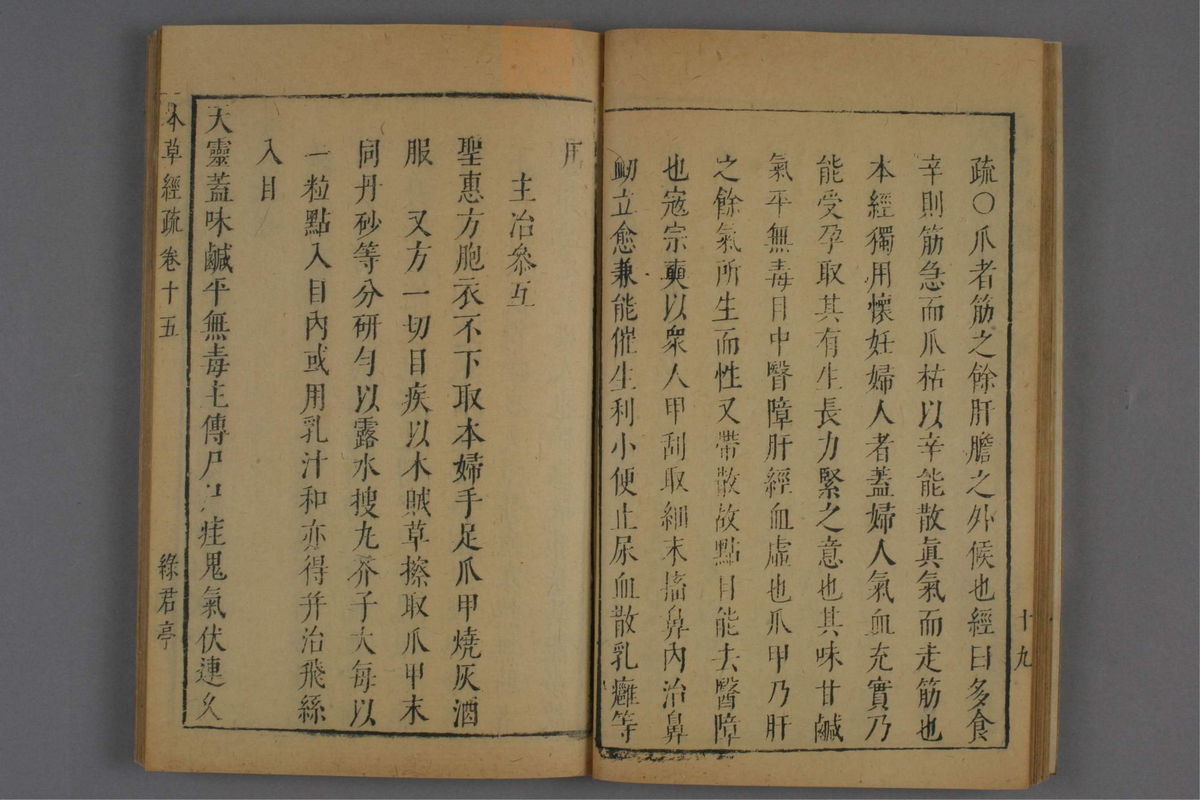 十九
疏〇爪者筋之餘肝膽之外候也經曰多食
辛則筋急而爪枯以辛能散眞氣而走筋也
本經獨用懷妊婦人者蓋婦人氣血充實乃
能受孕取其有生長力緊之意也其味甘鹹
氣平無毒目中瞖障肝經血虛也爪甲乃肝
之餘氣所生而性又帶散故點目能去瞖障
也寇宗奭以衆人甲刮取細末㨪鼻內治鼻
衂立愈兼能催生利小便止尿血散乳癰等
用
主治叅互
聖惠方胞衣不下取本婦手足爪甲燒灰酒
服 又方一切目疾以木賊草擦取爪甲末
同丹砂等分研勻以露水搜丸芥子大每以
一粒點入目內或用乳汁和亦得幷治飛絲
入目
天靈蓋味鹹平無毒主傳尸疰鬼氣伏連久
本草經疏 卷十五 綠君亭